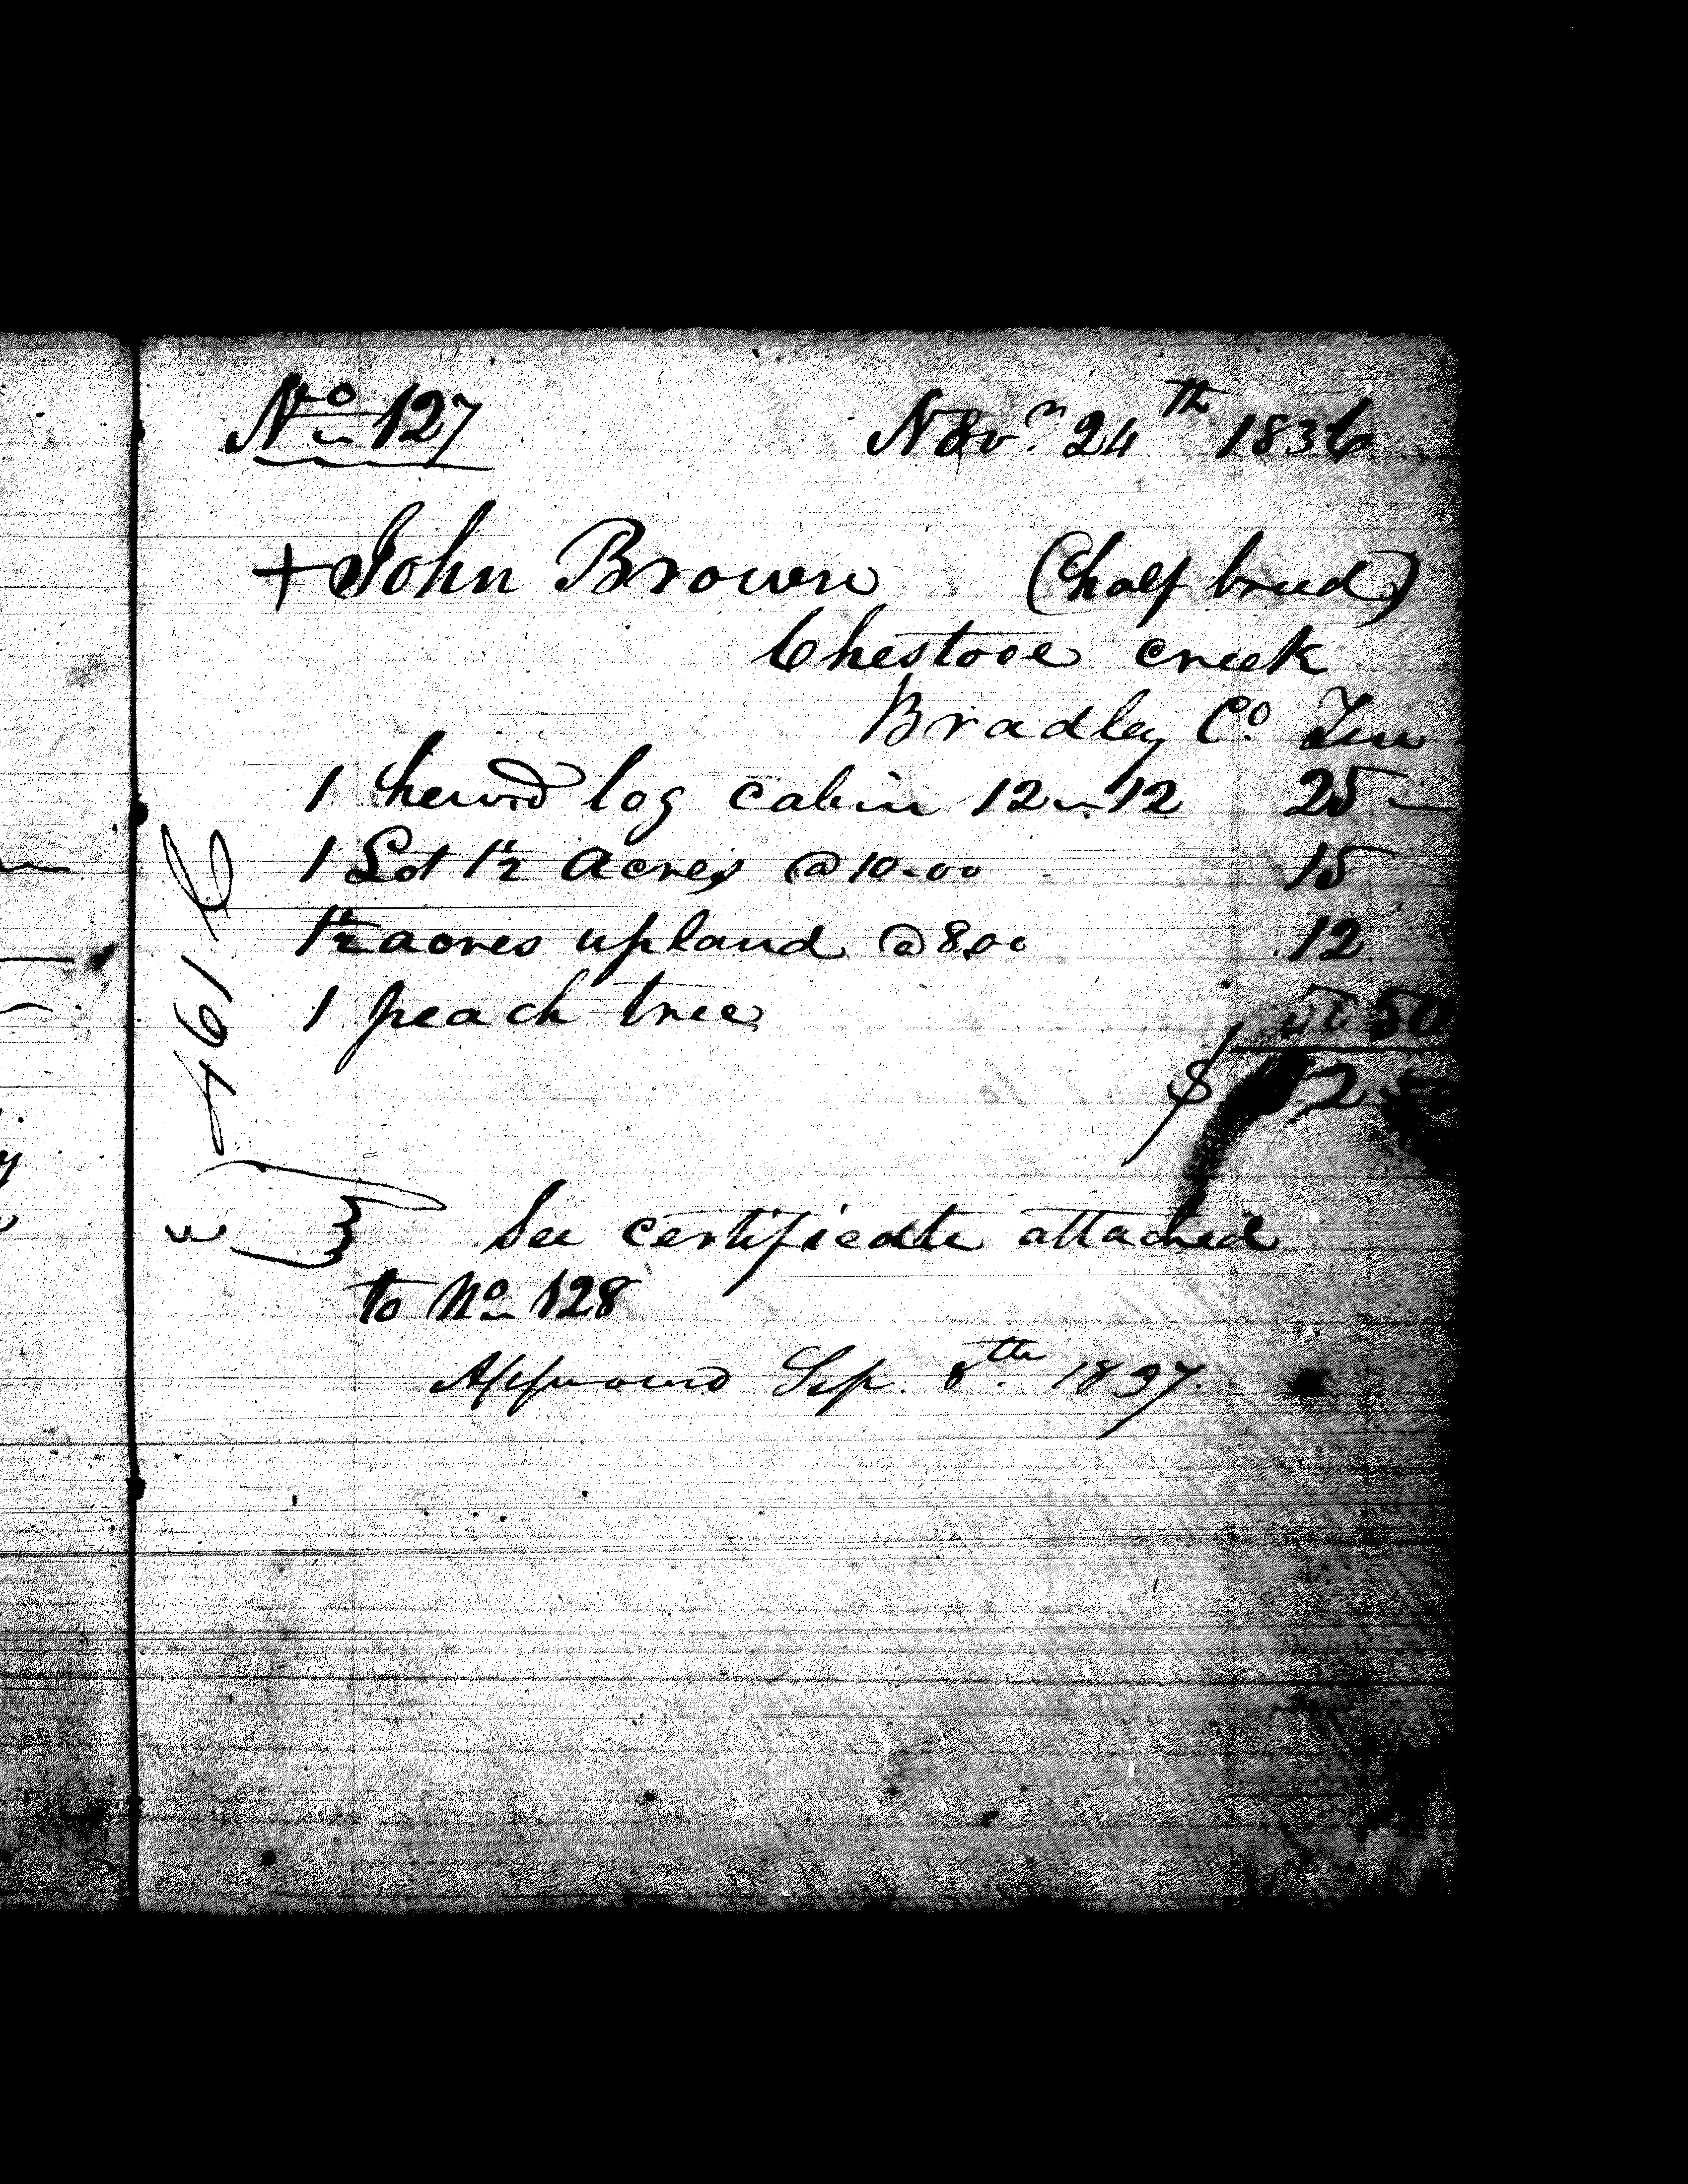 No 127 Novr 24th 1836
+ John Brown (half breed)
Chestooe creek
Bradley Co Ten
1 hewd log cabin 12 - 12 25
1 Lot 1 1/2 acres @ 10.00 15
1 1/2 acres upland @ 8.00 12
1 peach tree 50
$ 52
See certificate attached
to No 128
Approved Sep. 8th 1837.
461